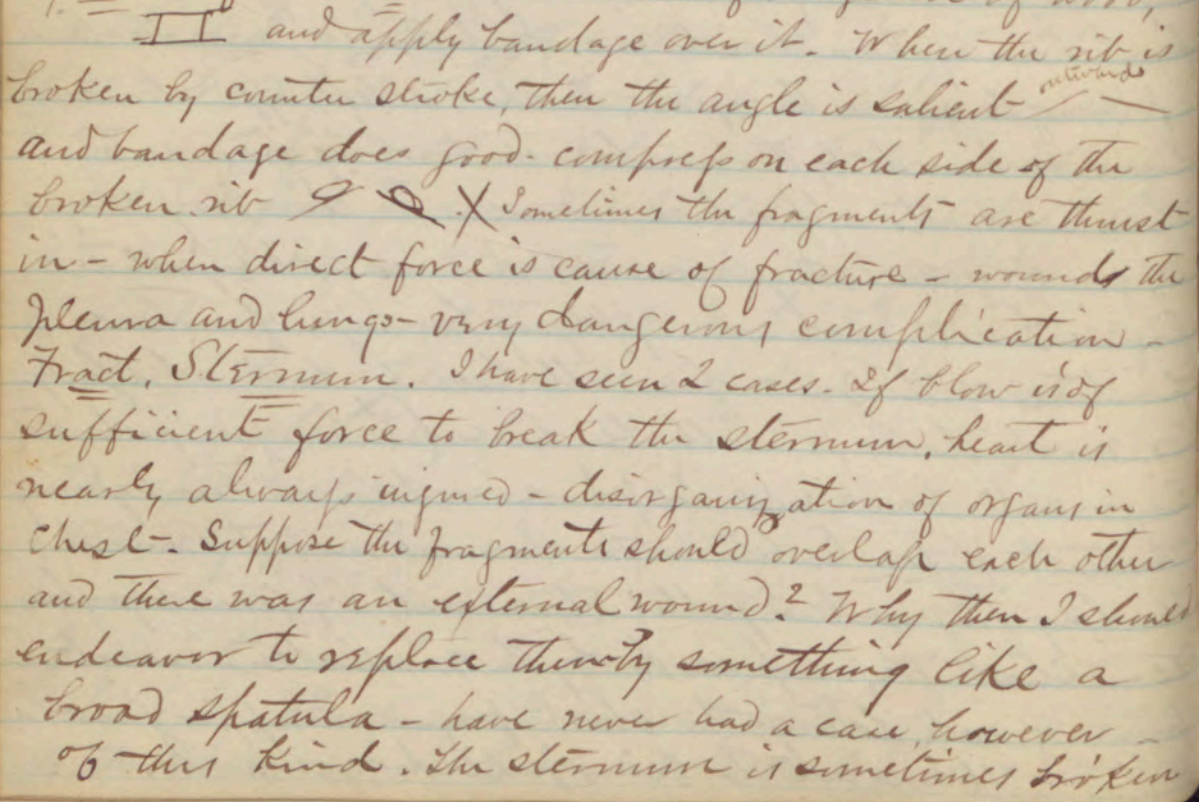 and apply bandage over it. When the rib is
broken by counter stroke, then the angle is salient outwards
and bandage does good. compress on each side of the
broken rib X Sometimes the fragments are thrust
in - when direct force is cause of fracture - wounds the
pleura and lungs - very dangerous complication -
Fract. Sternum. I have seen 2 cases. If blow is of
sufficient force to break the sternum, heart is
nearly always injured - disorganization of organs in
Chest - Suppose the fragments should overlap each other
and there was an external wound? Why then I should
endeavor to replace them by something like a
broad spatula - have never had a case, however -
of this kind. The sternum is sometimes broken